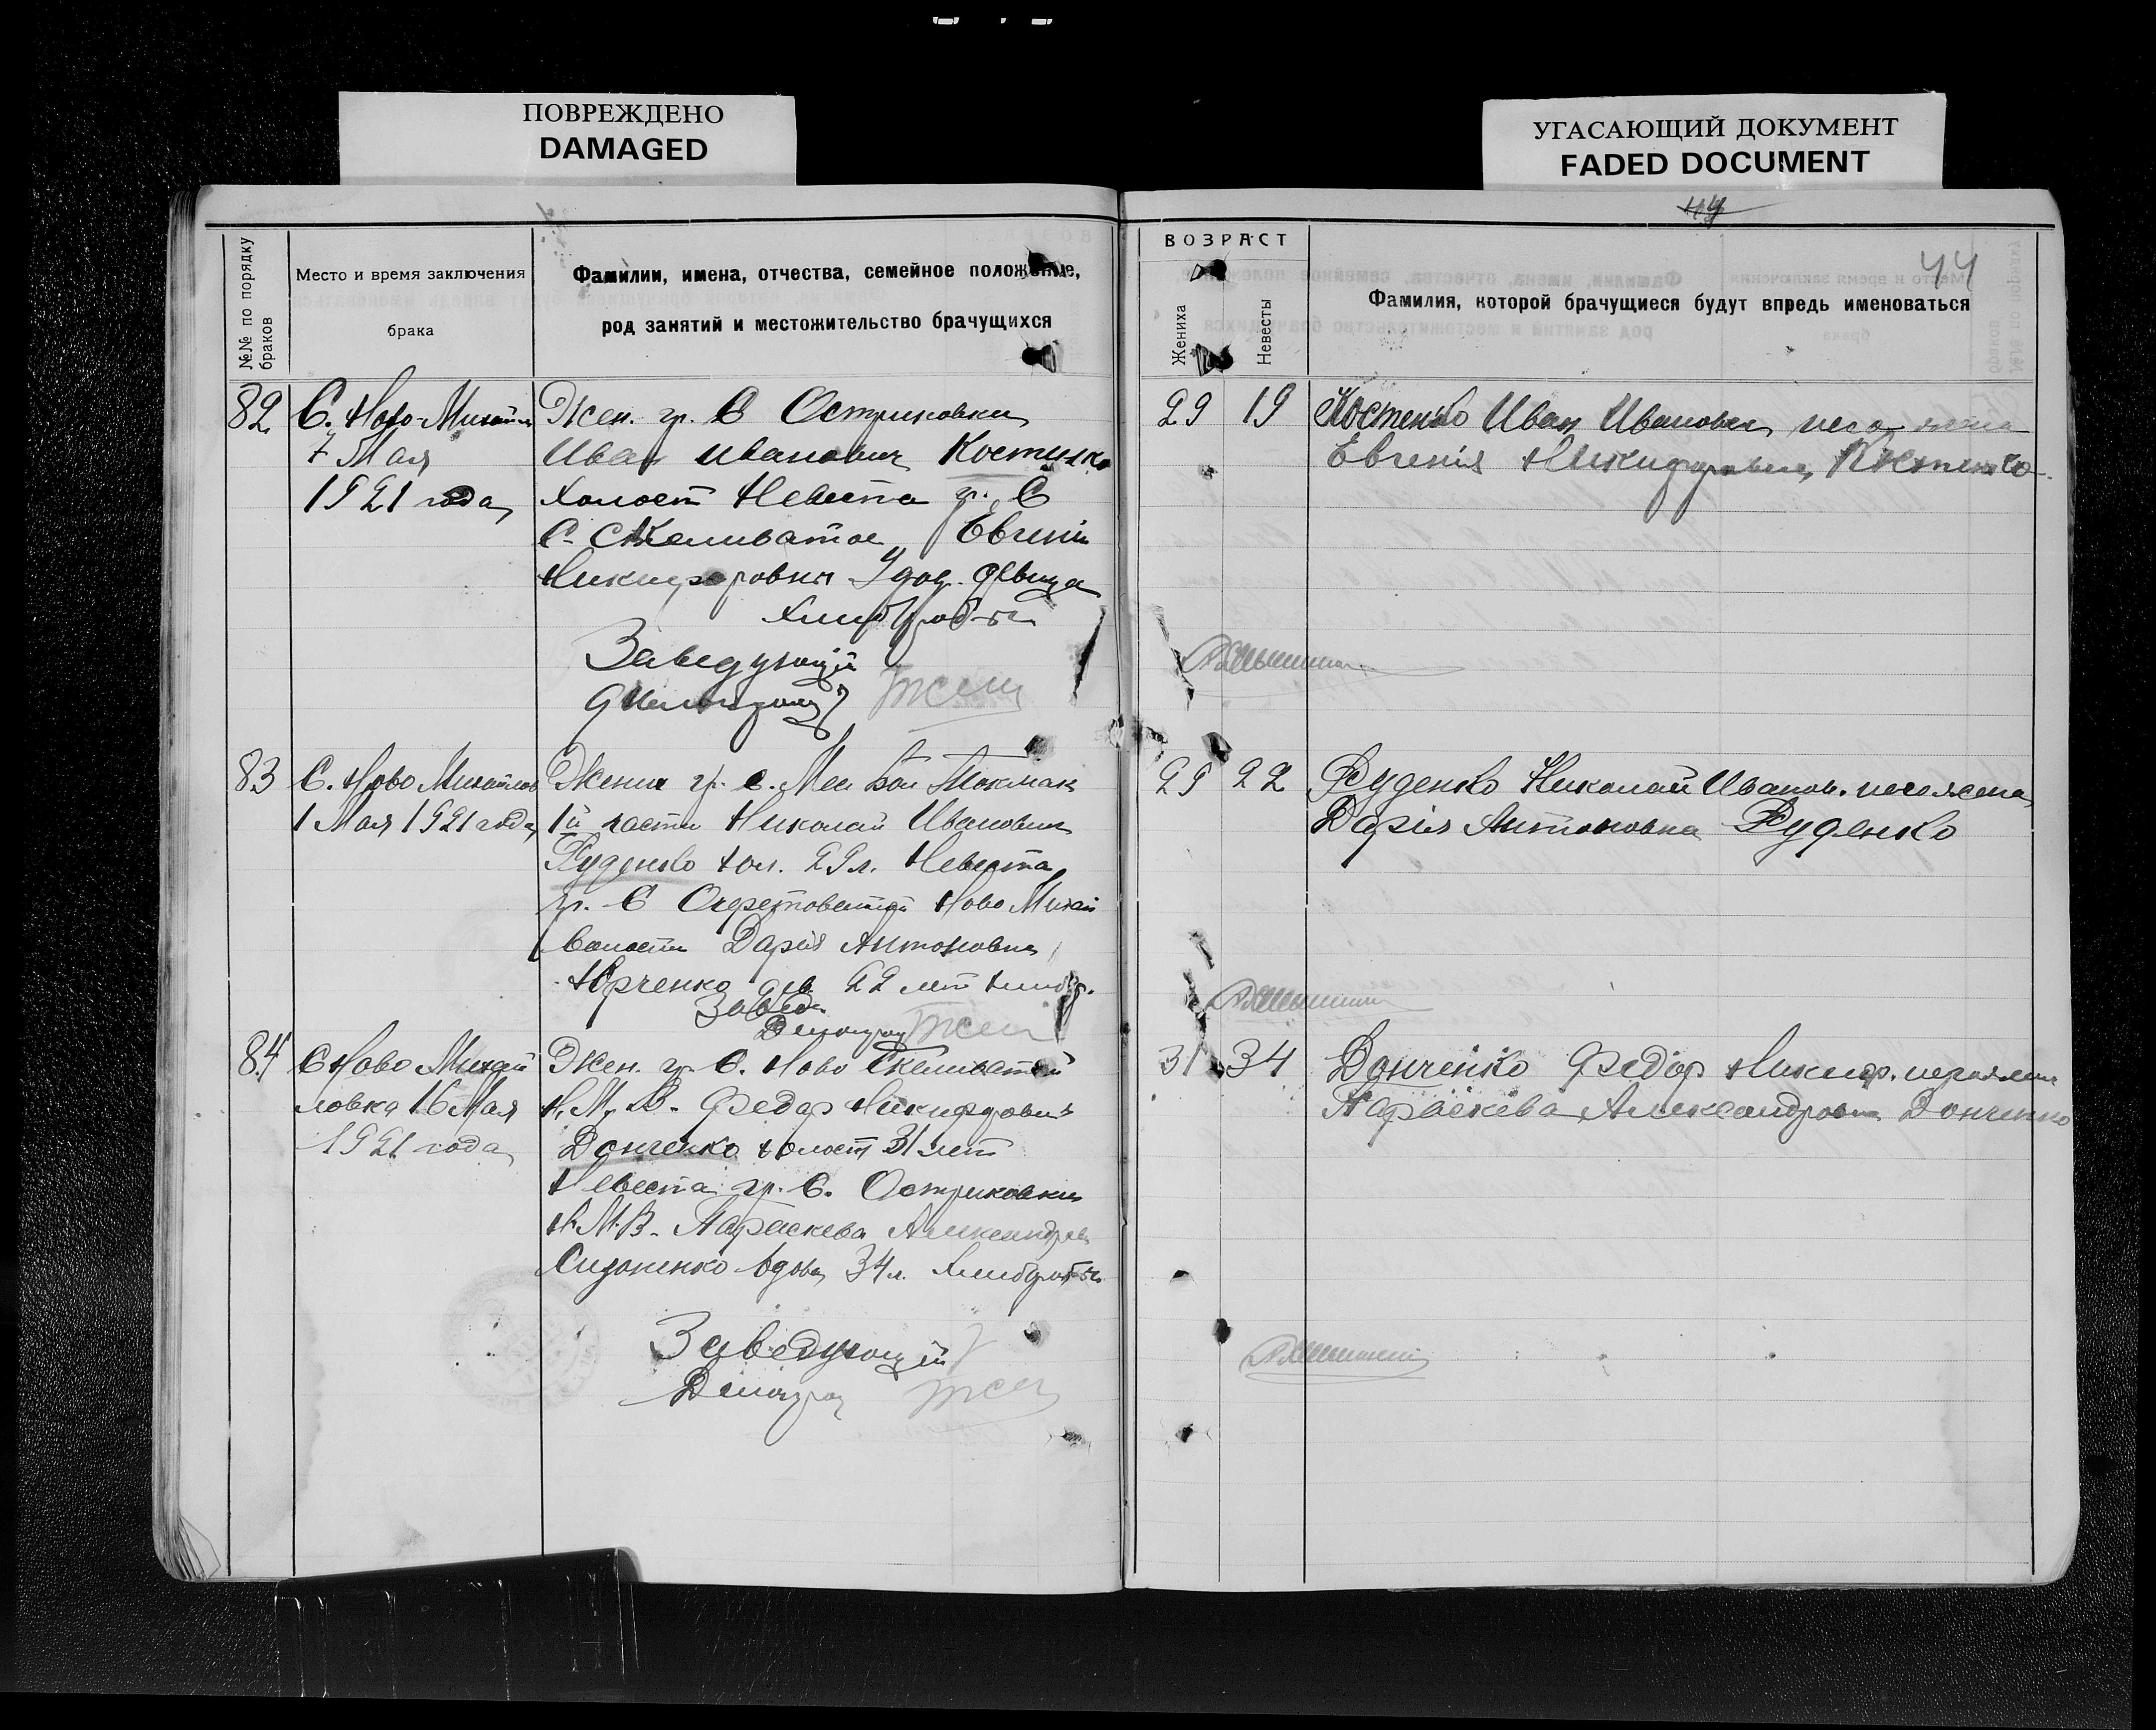 ПОВРЕЖДЕНО
DAMAGED
УГАСАЮЩИЙ ДОКУМЕНТ
FADED DOCUMENT
44
№№ по порядку браков
Место и время заключения
брака
Фамилии, имена, отчества, семейное положение,
род занятий и местожительство брачущихся
82
С. Ново-Михайл
7 Мая
1921 года
Жен. гр. С Остриковки
Иван Иванович Костенко
холост Невеста гр. С
С. Скелеватое Евгенія
Никифоровна Удод. девица
Хлебороб-ы
Заведующий
83
С. Ново Михайлов
1 Мая 1921 года
Жених гр. с. Мен Бол Токмак
1й части Николай Иванович
Руденко хол. 29 л. Невеста
гр. С Ново Михай
Волости Дарія Антоновна
Юрченко дев. 22 лет хлебор.
Завед.
84
С Ново Михай
ловка 16 Мая
1921 года
Жен. гр. С. Ново Скелеватой
Н. М. В. Федор Никифорович
Донченко холост 31 лет
Невеста гр. С. Остриковки
Н. М. В. Параскева Александров
Сидоненко вдова 34 л. Хлебороб-ы
Заведующий
ВОЗРАСТ
Жениха
Невесты
Фамилия, которой брачущиеся будут впредь именоваться
29 19 Костенко Иван Иванович, его жена
Евгенія Никифоровна, Костенко.
29 22 Руденко Николай Иванов. его жена
Дарія Антоновна Руденко
31 34 Донченко Федор Никифор. его жена
Параскева Александровна Донченко